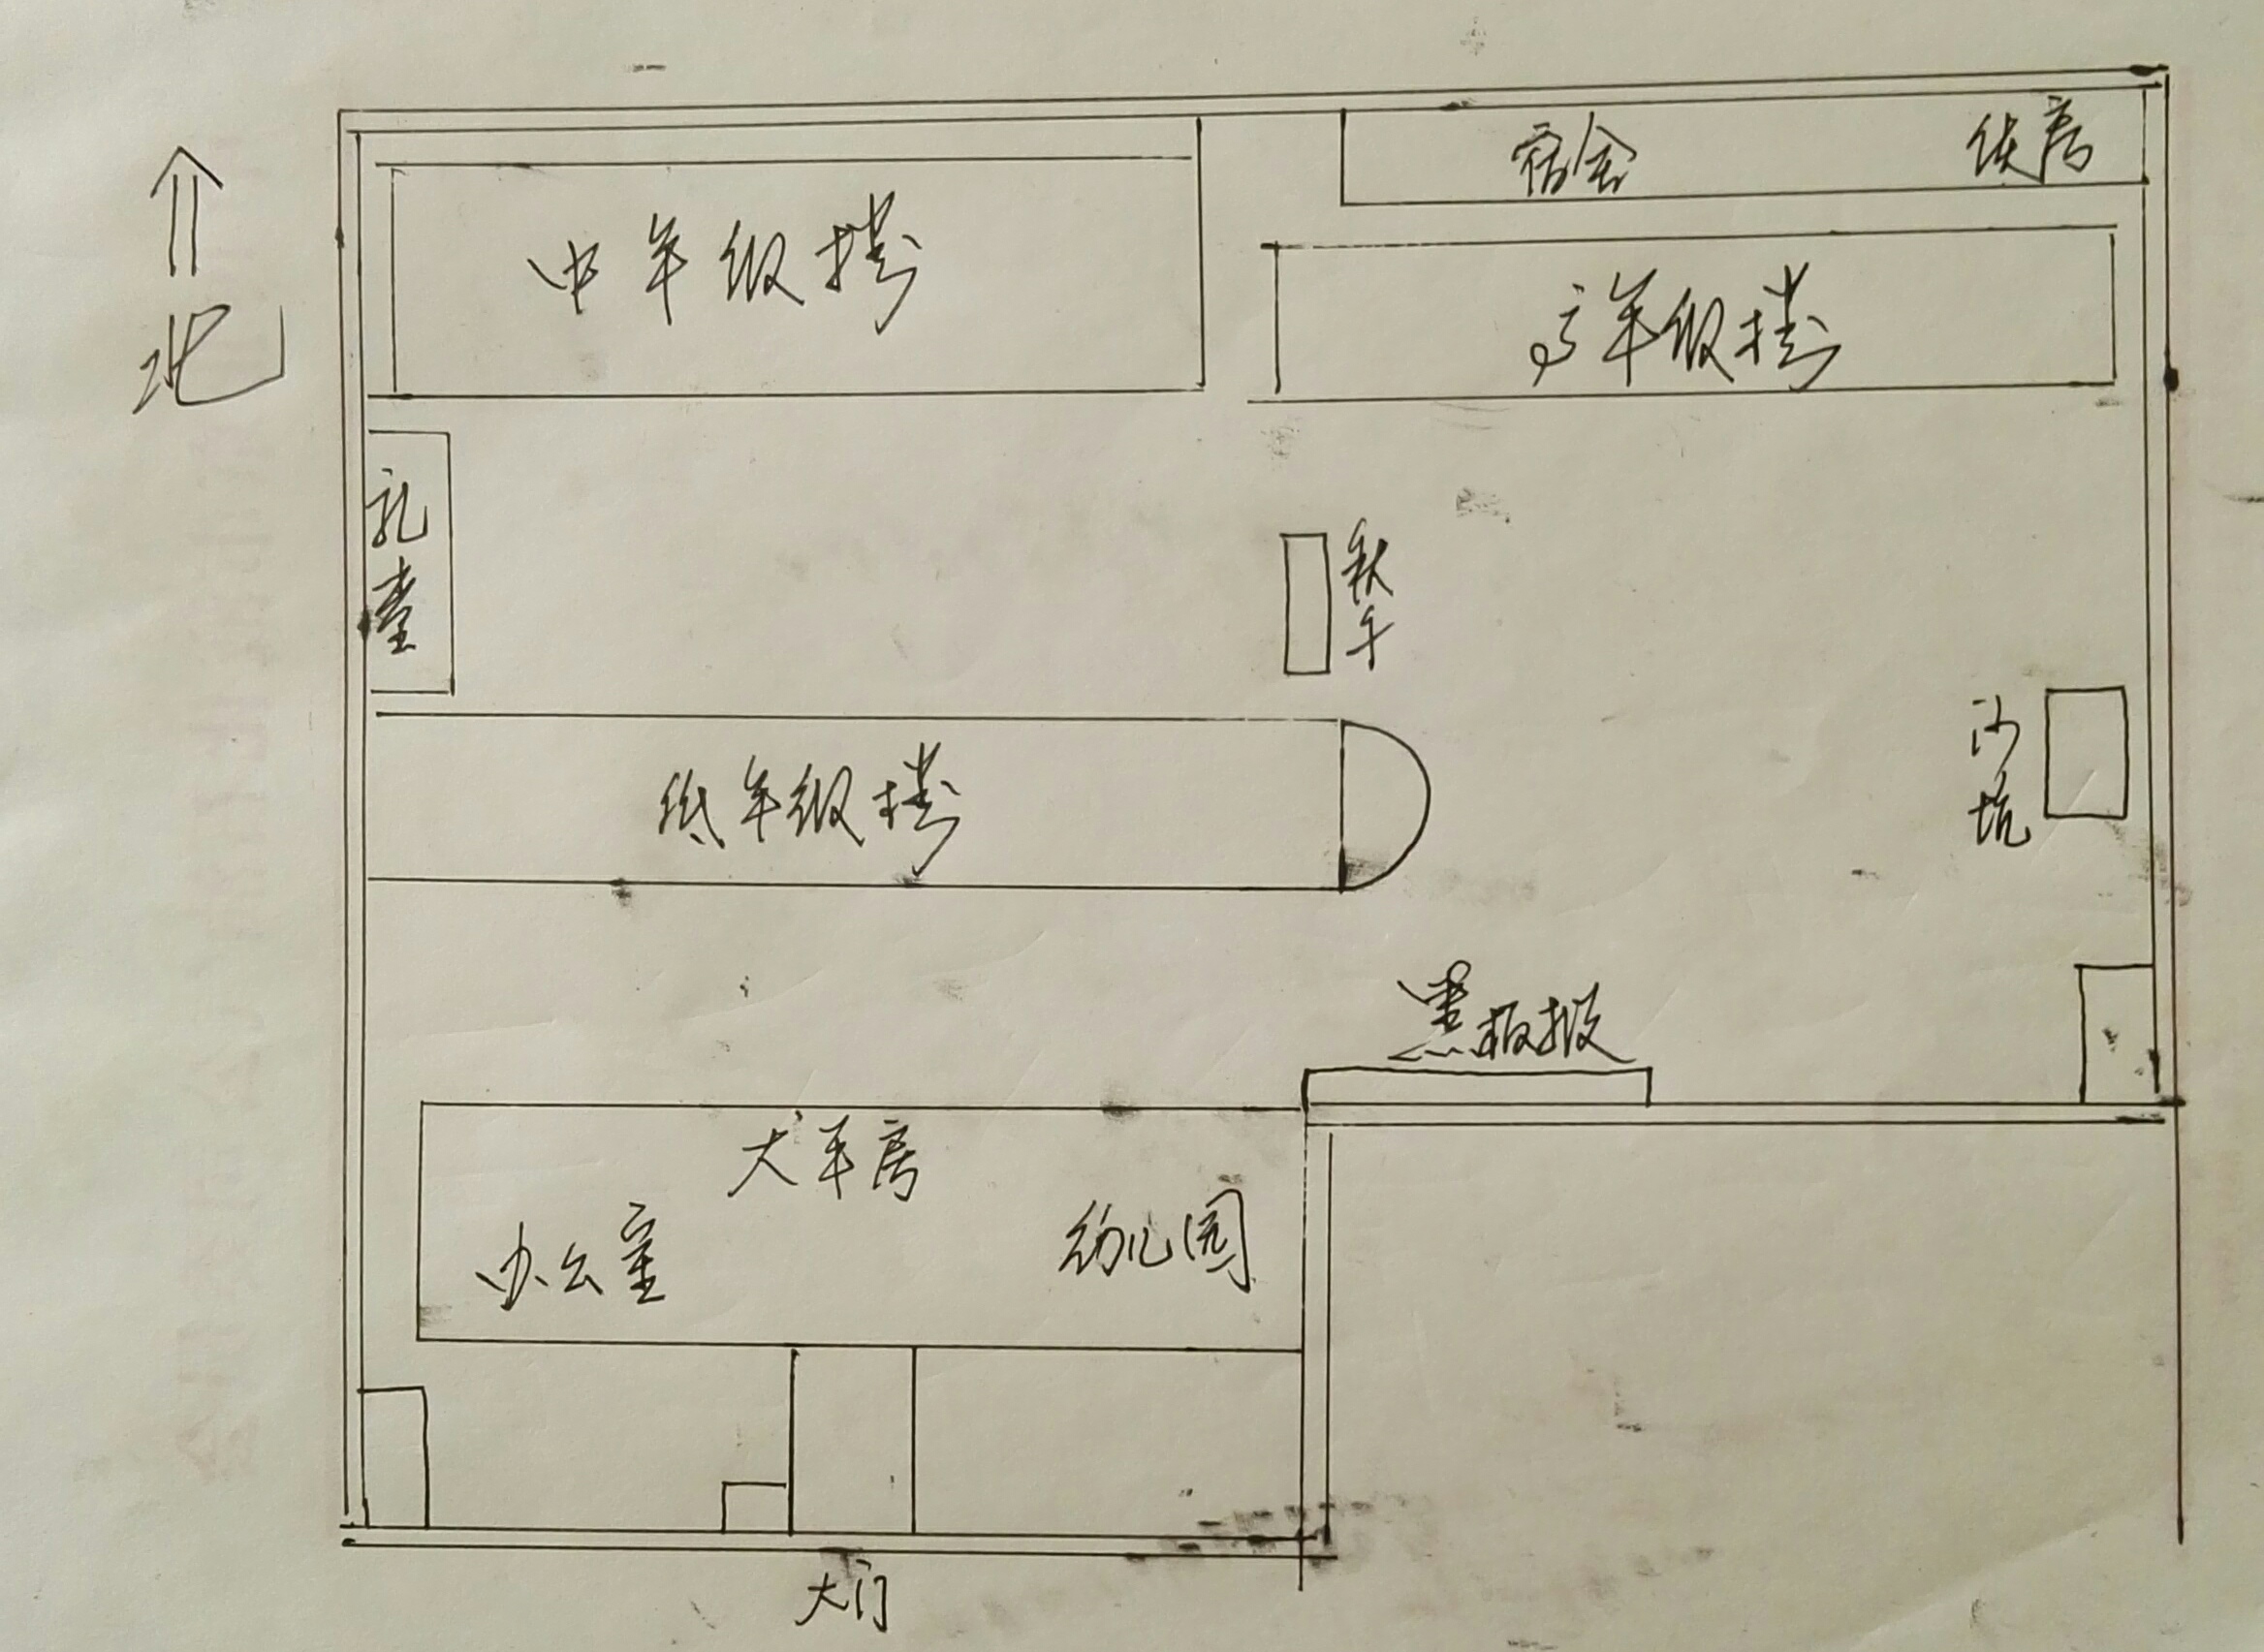 宿舍
伙房
北
中年级楼
高年级楼
礼堂
秋千
沙坑
低年级楼
黑板报
大平房
办公室
幼儿园
大门